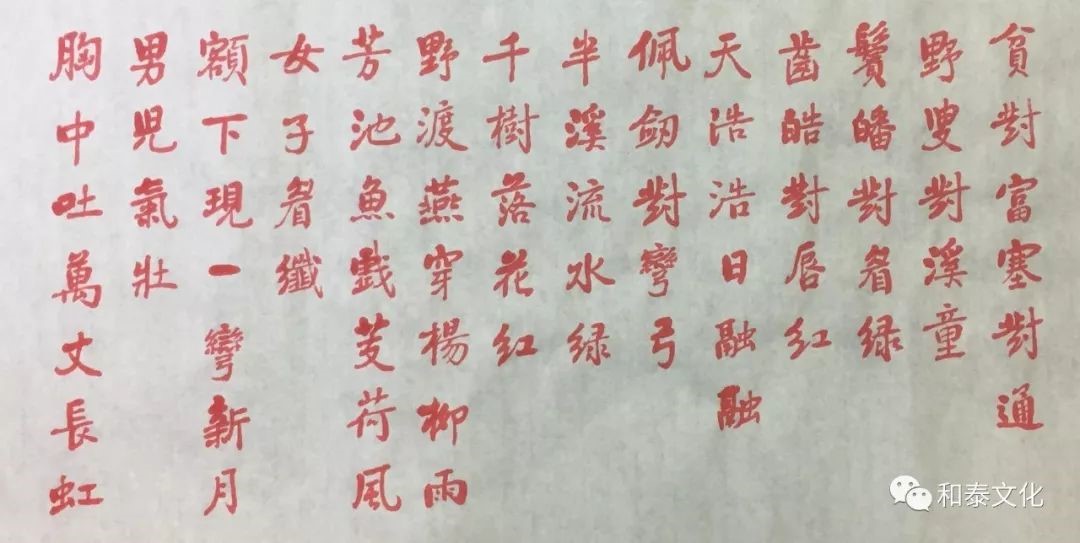 貧對富塞對通
野叟對溪童
鬢皤對眉綠
齒皓對唇紅
天浩浩日融融
佩劒對彎弓
半溪流水綠
千樹落花紅
野渡燕穿楊柳雨
芳池魚戲芰荷風
女子眉纖
額下現一彎新月
男兒氣壯
胸中吐萬丈長虹
和泰文化